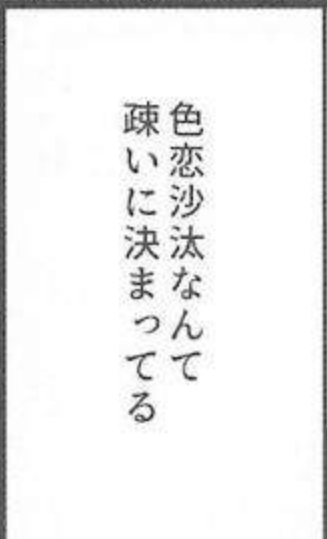 色恋沙汰なんて
疎いに決まってる